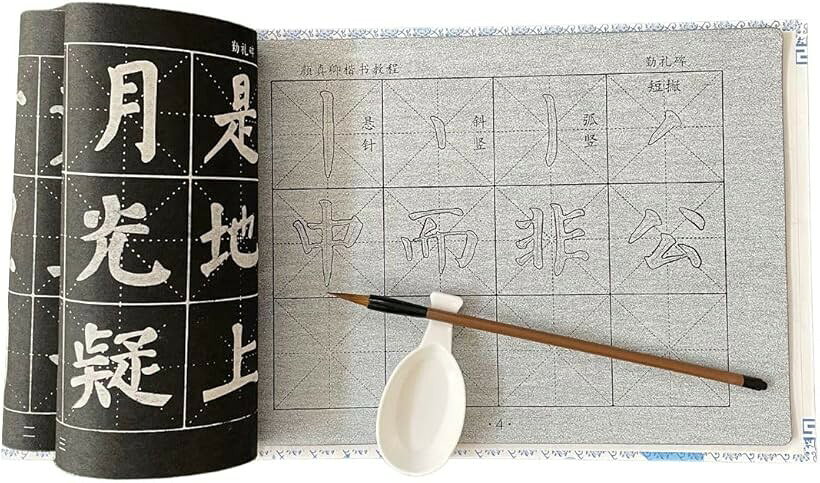 勤礼碑
月 是
光 地
疑 上
二
三
颜真卿楷书教程
勤礼碑
悬针
斜竖
弧竖
短撇
中 而 非 公
·4·